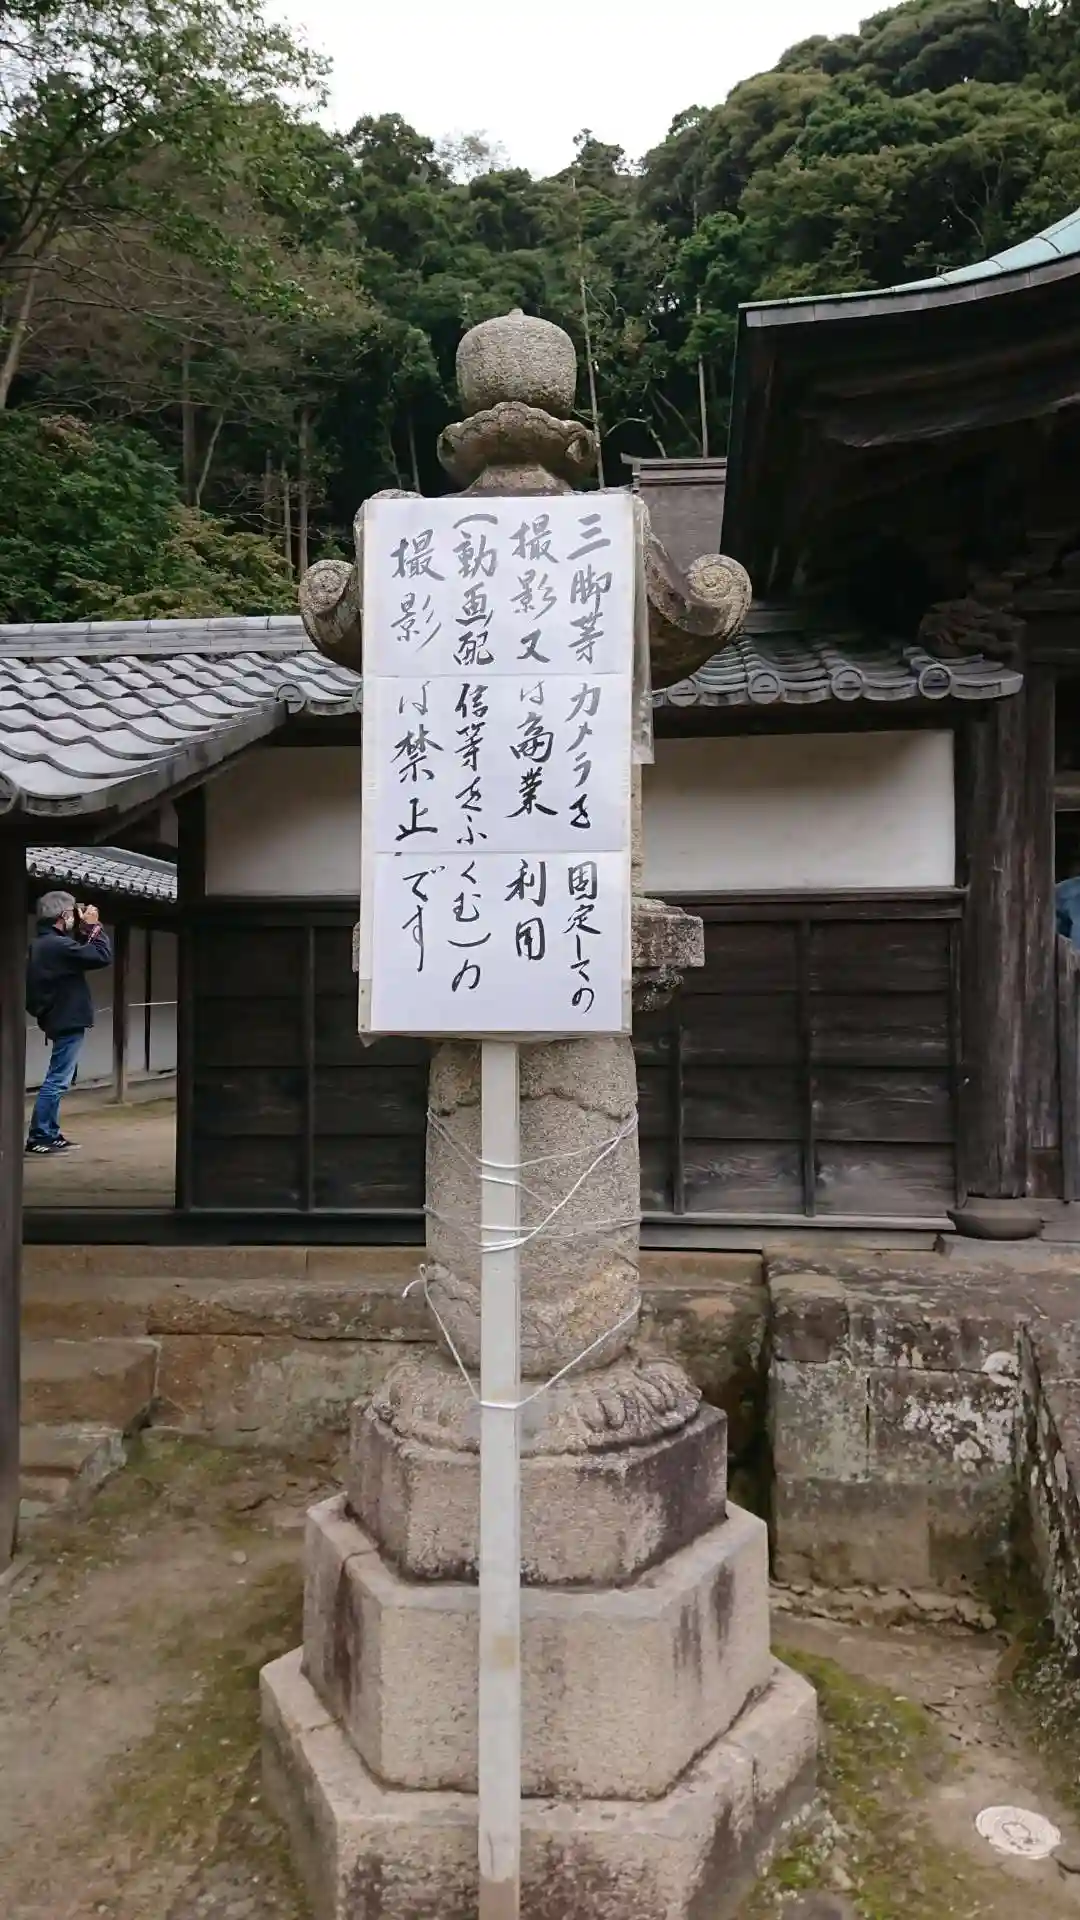 三脚等カメラを固定しての
撮影又は商業利用
(動画配信等をふくむ)の
撮影は禁止です